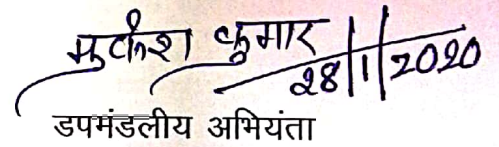 मुकेश कुमार
28/1/2020
डपमंडलीय अभियंता